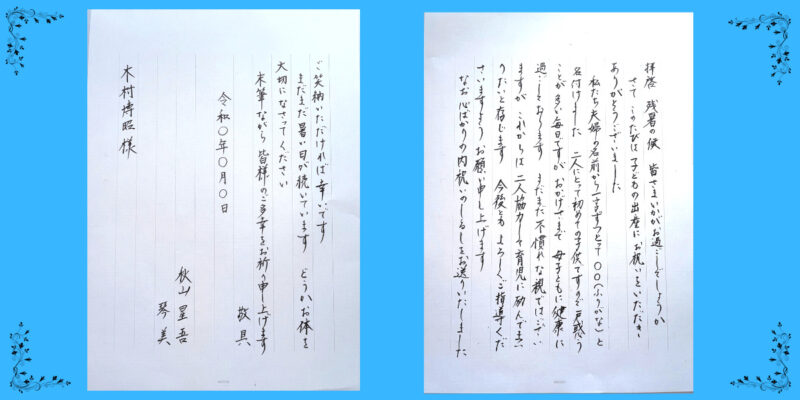 拝啓 残暑の候 皆さまいかがお過ごしでしょうか
さて このたびは 子どもの出産にお祝いをいただき
ありがとうございました
私たち夫婦の名前から一字ずつとって〇〇(ふりがな)と
名付けました 二人にとって初めての子供ですので戸惑う
ことが多い毎日ですが おかげさまで 母子ともに健康に
過ごしております まだまだ不慣れな親ではござい
ますが これからは 二人協力して育児に励んでまい
りたいと存じます 今後とも よろしくご指導くだ
さいますよう お願い申し上げます
なお 心ばかりの内祝いのしるしをお送りいたしました
ご笑納いただければ幸いです
まだまだ暑い日が続いています どうかお体を
大切になさってください
末筆ながら 皆様のご多幸をお祈り申し上げます
敬具
令和〇年〇月〇日
秋山星吾
琴美
木村博昭様